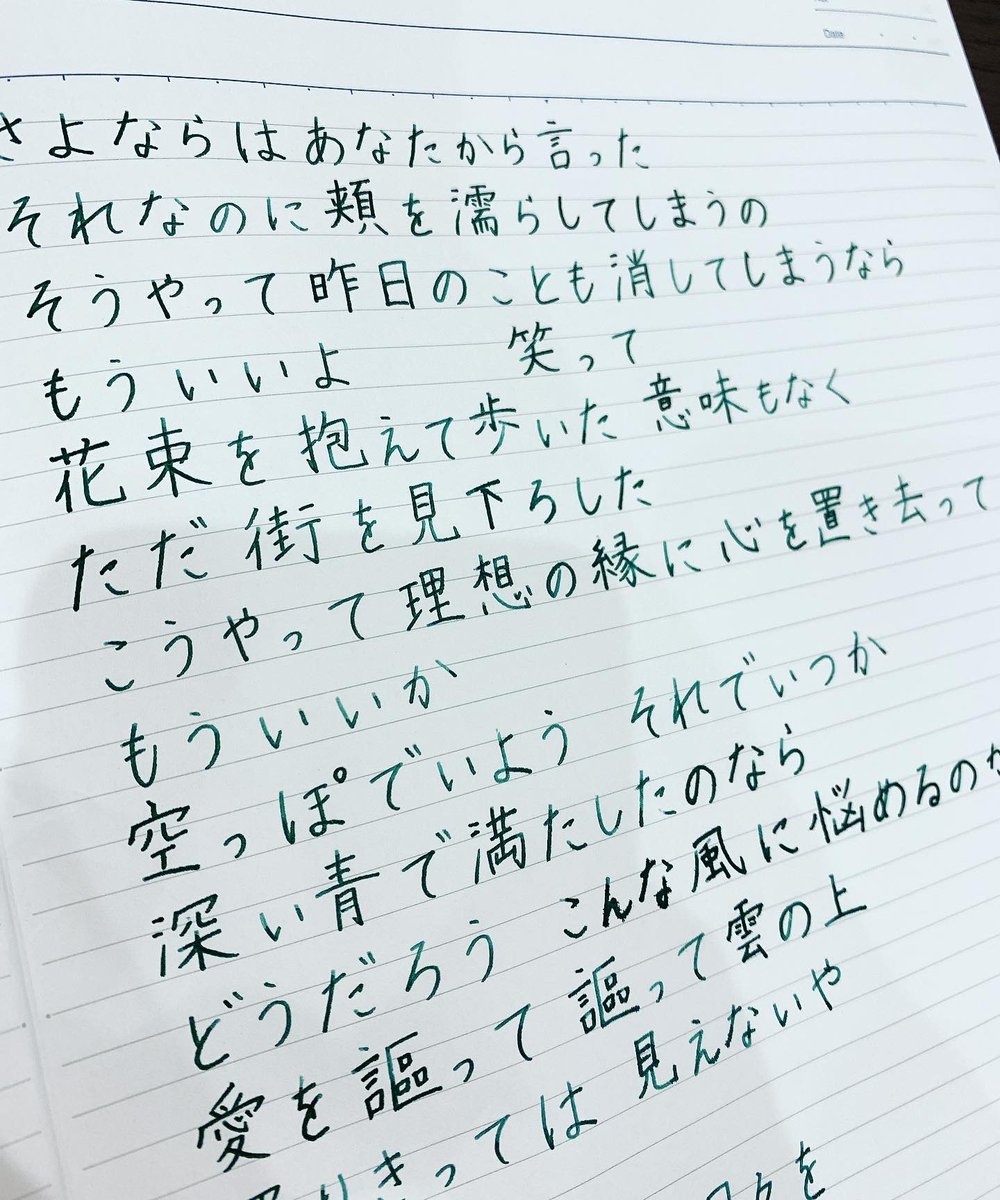 Date
さよならはあなたから言った
それなのに頬を濡らしてしまうの
そうやって昨日のことも消してしまうなら
もういいよ 笑って
花束を抱えて歩いた意味もなく
ただ街を見下ろした
こうやって理想の縁に心を置き去って
もういいか
空っぽでいよう それでいつか
深い青で満たしたのなら
どうだろう こんな風に悩めるのか
愛を謳って謳って雲の上
りきっては見えないや
日々を